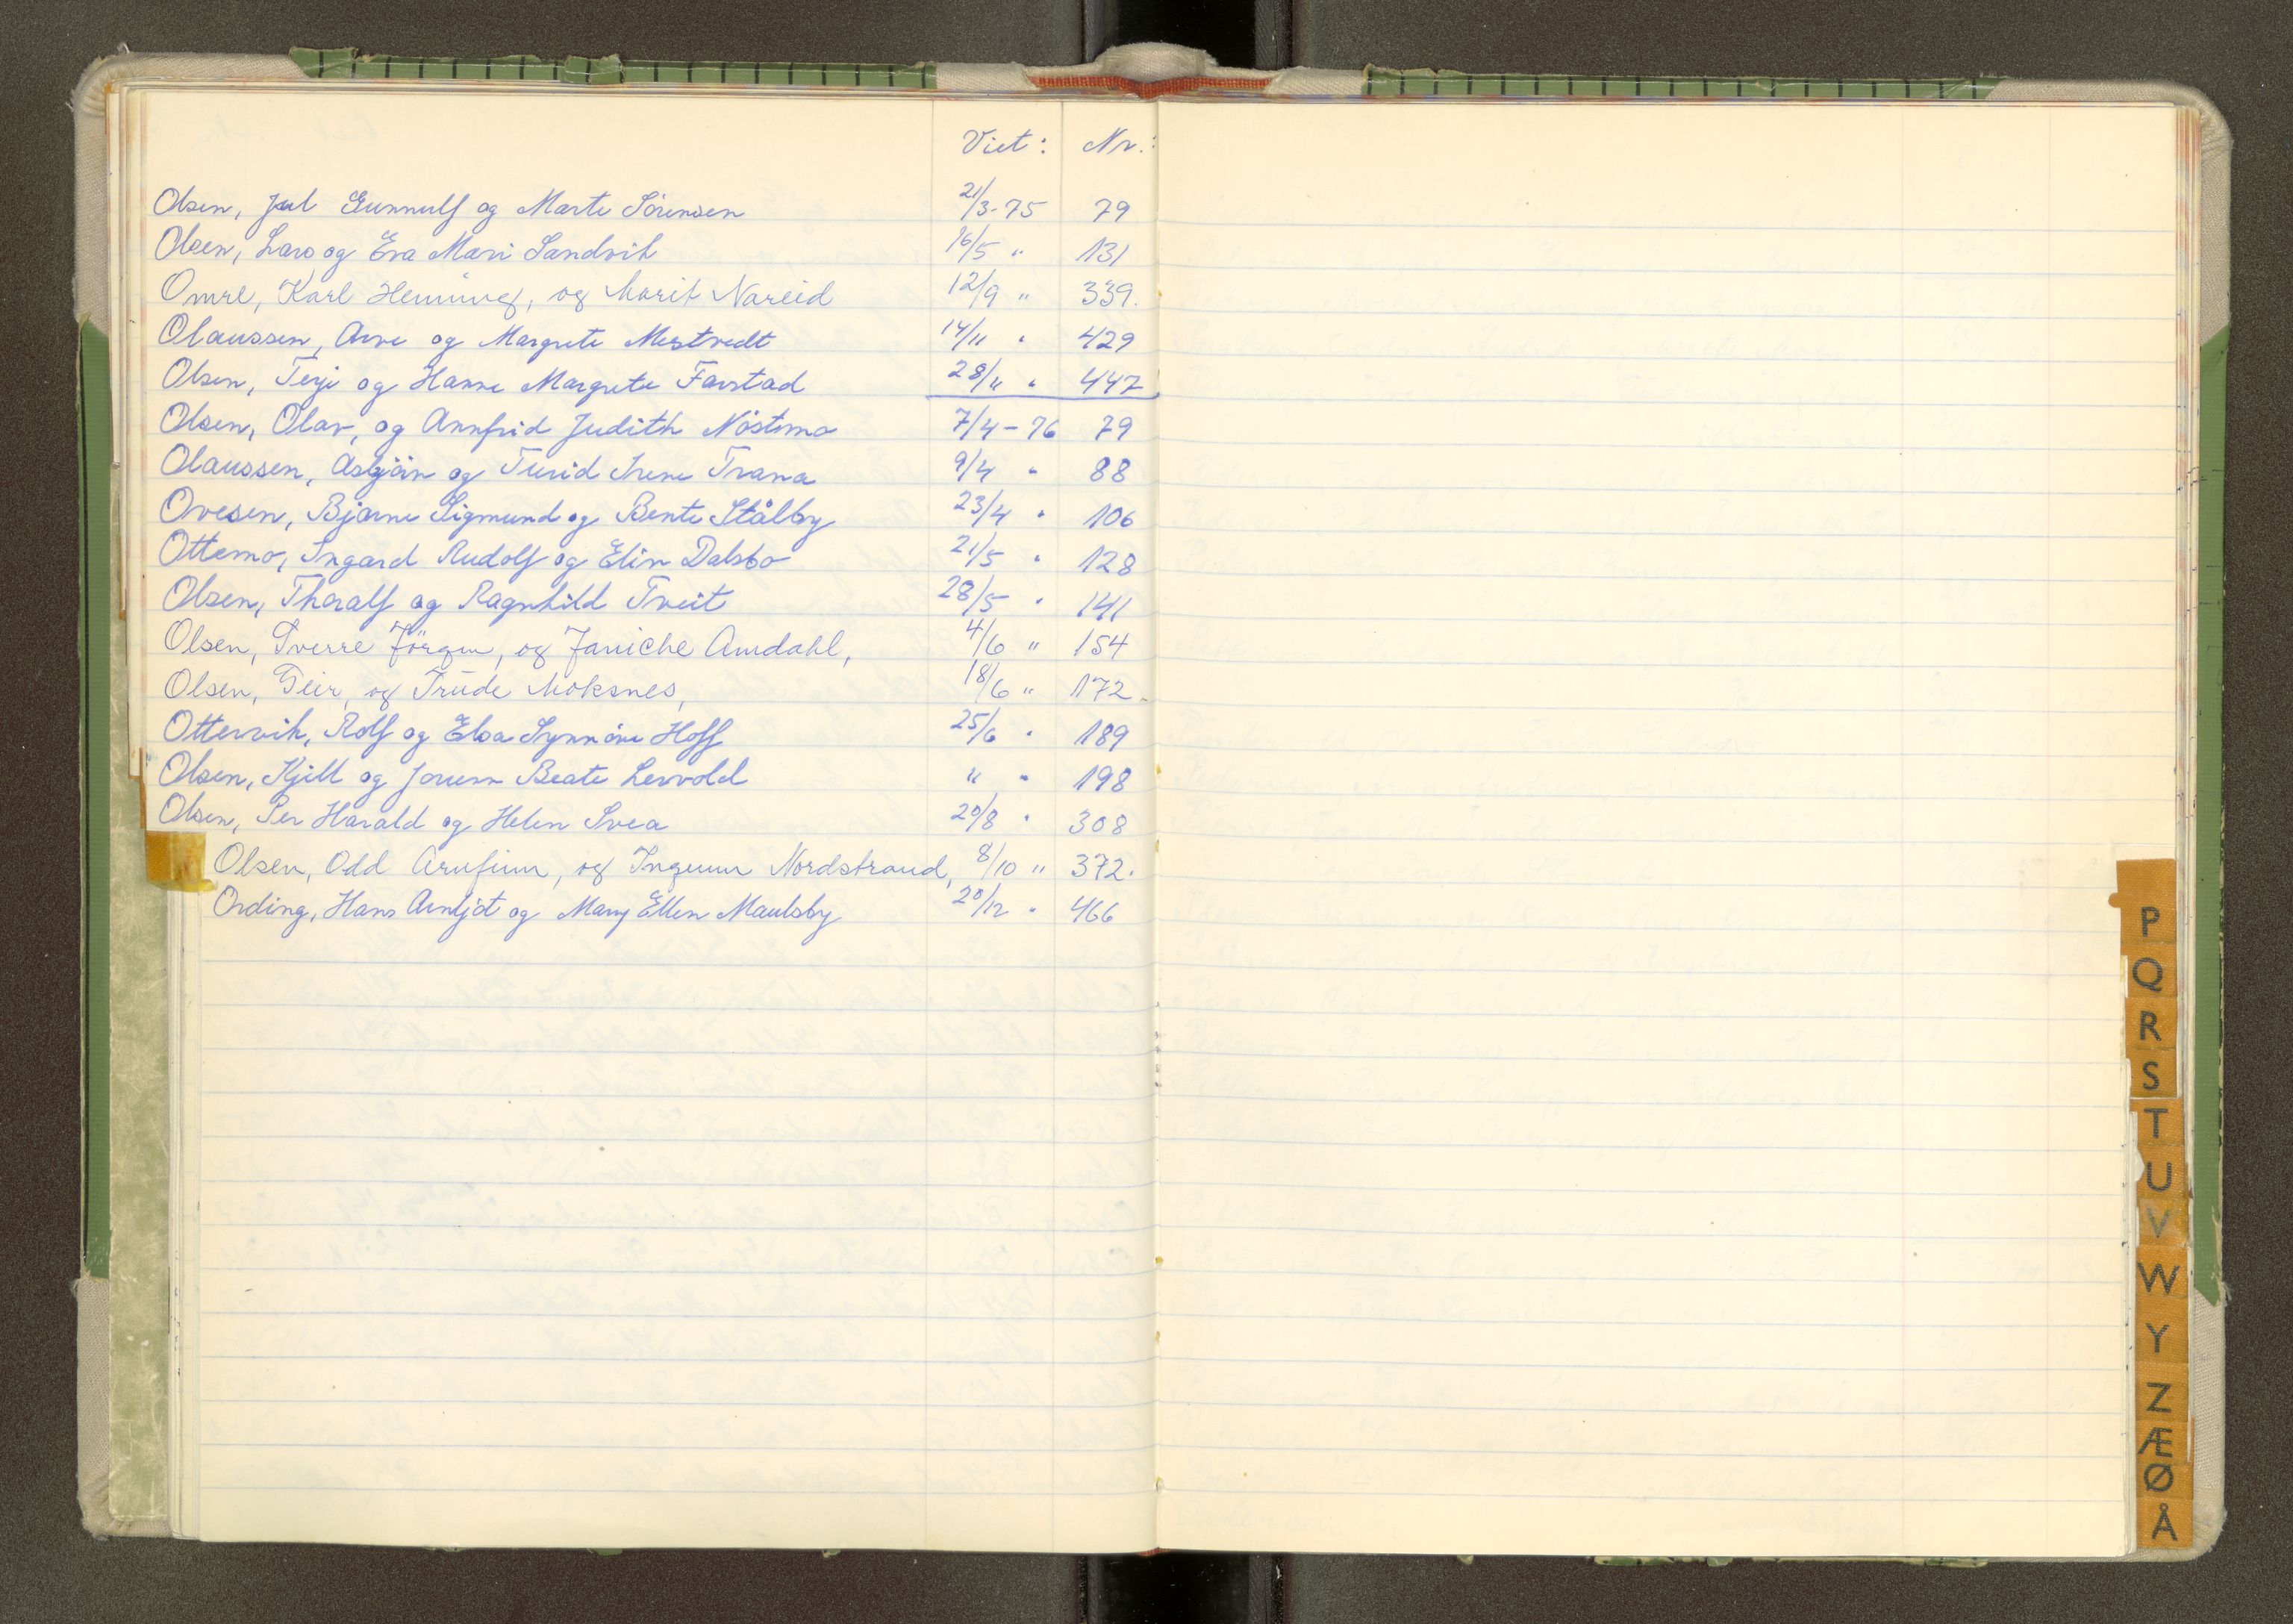 Viet: Nr.:
Olsen, Jul Gunnulf og Marte Sörensen 21/3-75 79
Olsen, Lars og Eva Mari Sandvik 16/5 " 131
Omre, Karl Henning, og Marit Nareid 12/9 " 339.
Olaussen, Arve og Margrete Mestvedt 14/11 " 429
Olsen, Terje og Hanne Margrete Farstad 28/11 " 447
Olsen, Olav, og Annfrid Judith Nöstmo 7/4-76 79
Olaussen, Asbjörn og Turid Irene Trana 9/4 " 88
Ovesen, Bjarne Sigmund og Bente Stålby 23/4 " 106
Ottemo, Ingard Rudolf og Elin Dalsbo 21/5 " 128
Olsen, Thoralf og Ragnhild Tveit 28/5 " 141
Olsen, Sverre Jörgen, og Janiche Amdahl, 4/6 " 154
Olsen, Geir, og Trude Moksnes, 18/6 " 172.
Ottervik, Rolf og Elsa Synnöve Hoff 25/6 " 189
Olsen, Kjell og Jorunn Beate Lervold " " 198
Olsen, Per Harald og Helen Svea 20/8 " 308
Olsen, Odd Arnfinn, og Ingunn Nordstrand, 8/10 " 372.
Ording, Hans Arnljot og Mary Ellen Maulsby 20/12 " 466
P
Q
R
S
T
U
V
W
Y
Z
Æ
Ø
Å